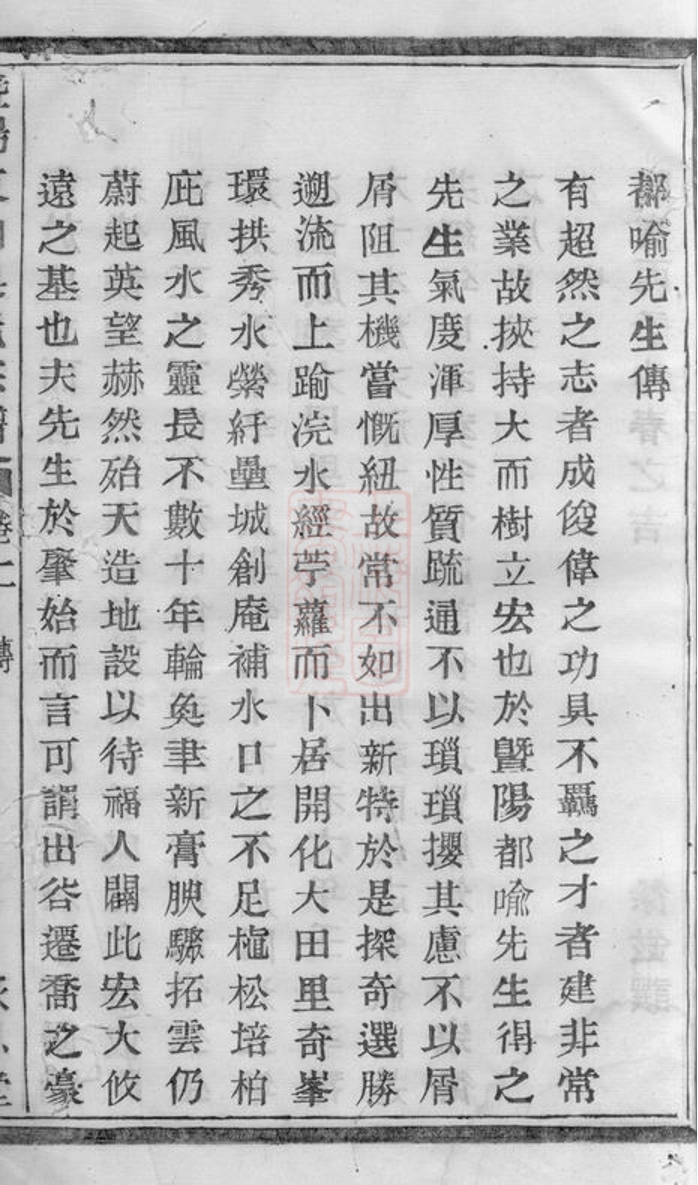 都喻先生傳
有超然之志者成俊偉之功具不羈之才者建非常
之業故挾持大而樹立宏也於暨陽都喻先生得之
先生氣度渾厚性質疏通不以瑣瑣攖其慮不以屑
屑阻其機嘗慨紐故常不如出新特於是探奇選勝
遡流而上踰浣水經苧蘿而卜居開化大田里奇峯
環拱秀水縈紆壘城創庵補水口之不足植松培柏
庇風水之靈長不數十年輪奐聿新膏腴驟拓雲仍
蔚起英望赫然殆天造地設以待福人闢此宏大攸
遠之基也夫先生於肇始而言可謂出谷遷喬之豪